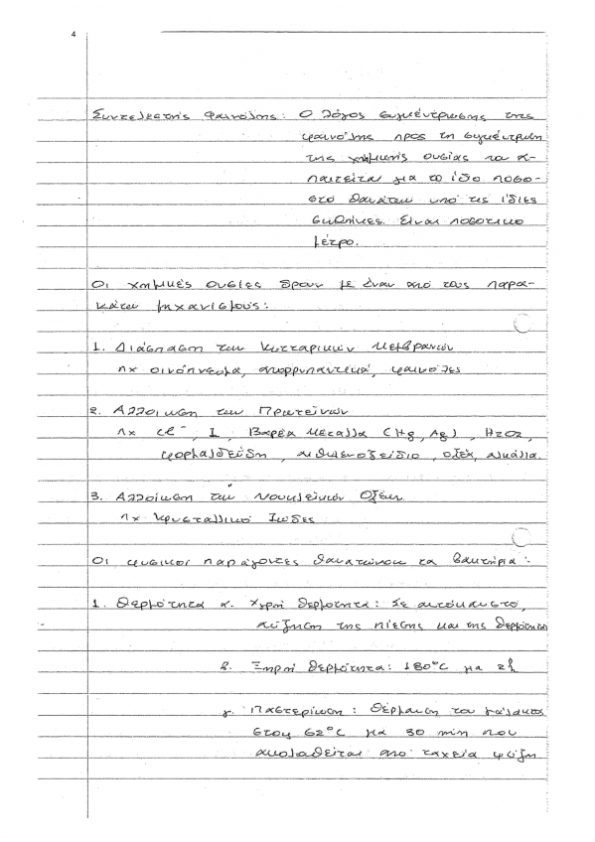 4
Συντελεστής Φαινόλης: Ο λόγος συγκέντρωσης της
φαινόλης προς τη συγκέντρωση
της χημικής ουσίας που α-
παιτείται για το ίδιο ποσο-
στό θανάτων υπό τις ίδιες
συνθήκες. Είναι ποσοτικό
μέτρο.
Οι χημικές ουσίες δρουν με έναν από τους παρα-
κάτω μηχανισμούς:
1. Διάσπαση των Κυτταρικών Μεμβρανών
πχ οινόπνευμα, απορρυπαντικά, φαινόλες
2. Αλλοίωση των Πρωτεϊνών
πχ Cl⁻, I, Βαρέα Μέταλλα (Hg, Ag), H2O2,
φορμαλδεΰδη, αιθυλενοξείδιο, οξέα, αλκάλια.
3. Αλλοίωση των Νουκλεϊκών Οξέων
πχ Κρυσταλλικό Ιώδες
Οι φυσικοί παράγοντες θανατώνουν τα βακτήρια:
1. Θερμότητα α. Υγρή θερμότητα: Σε αυτόκαυστο,
αύξηση της πίεσης και της θερμότητας
β. Ξηρή θερμότητα: 180°C για 2h
γ. Παστερίωση: Θέρμανση του γάλακτος
στους 62°C για 30 min που
ακολουθείται από ταχεία ψύξη